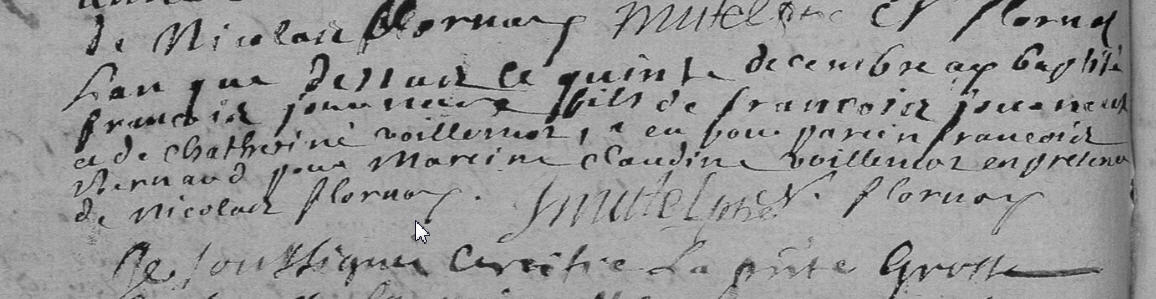 de Nicolas flornoy Mutel ptre N flornoy
Lan que dessus le quinze decembre ay baptisé
francois jouueneaux fils de francois jouueneaux
et de Chatherine voillemot, a eu pour parein francois
Bernard pour Mareine Claudine voillemot en presence
de Nicolas flornoy. Mutel ptre N. flornoy
Je soussigne Certifie La pnte Grosse